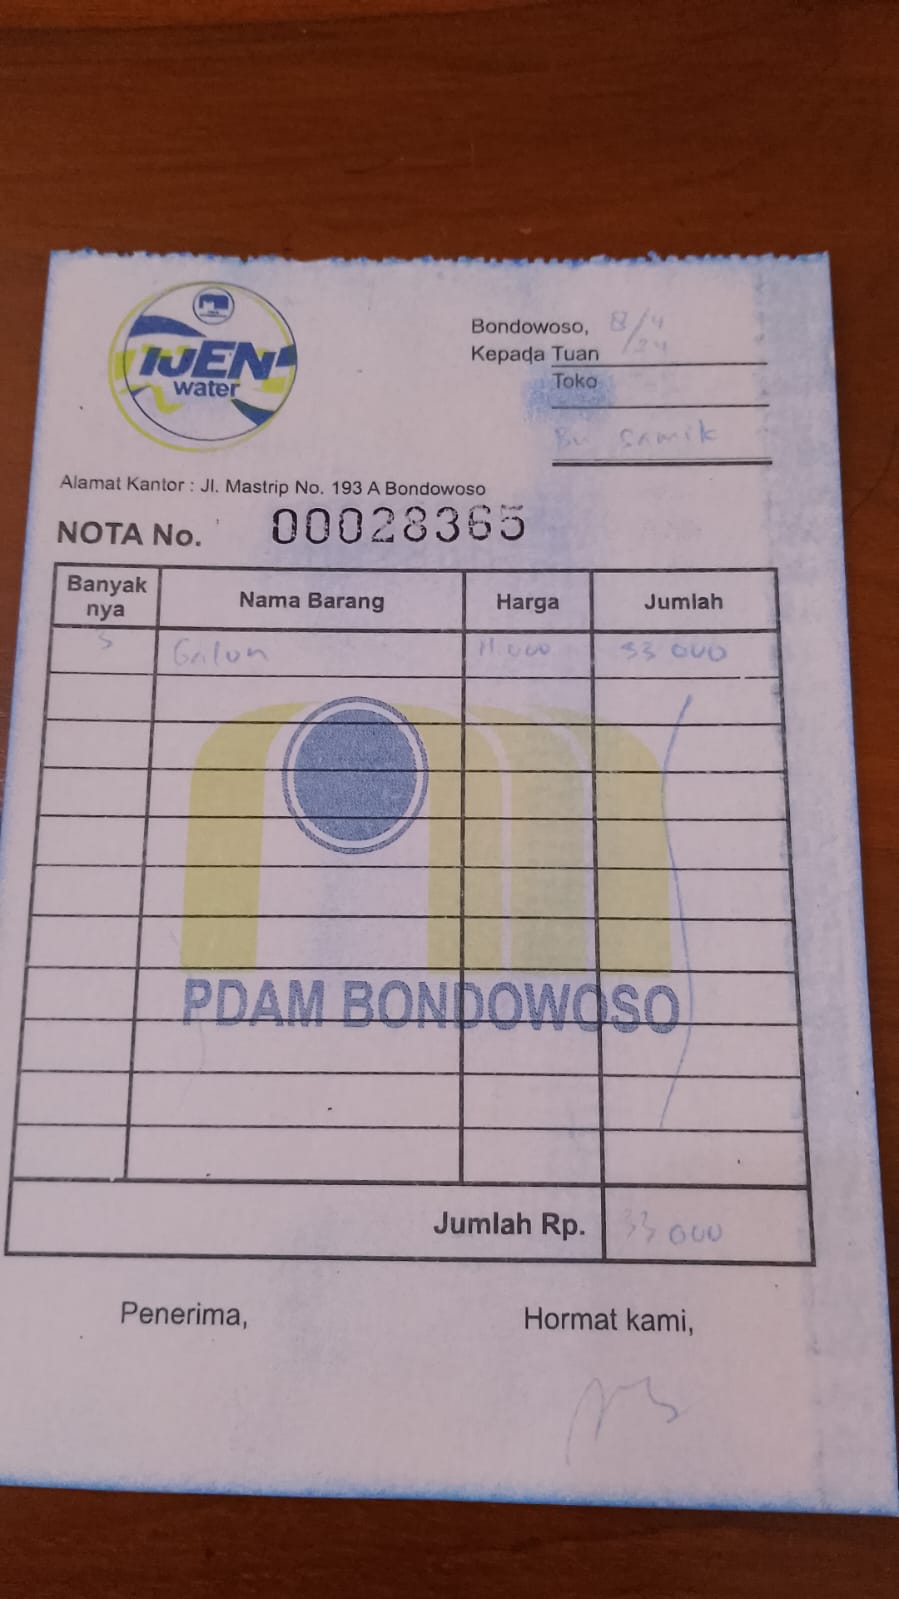 IJEN
water
Bondowoso, 8/4
/24
Kepada Tuan
Toko
Bu Samik
Alamat Kantor : Jl. Mastrip No. 193 A Bondowoso
NOTA No. 00028365
Banyak nya Nama Barang Harga Jumlah
3 Galon 11.000 33 000
PDAM BONDOWOSO
Jumlah Rp. 33 000
Penerima, Hormat kami,